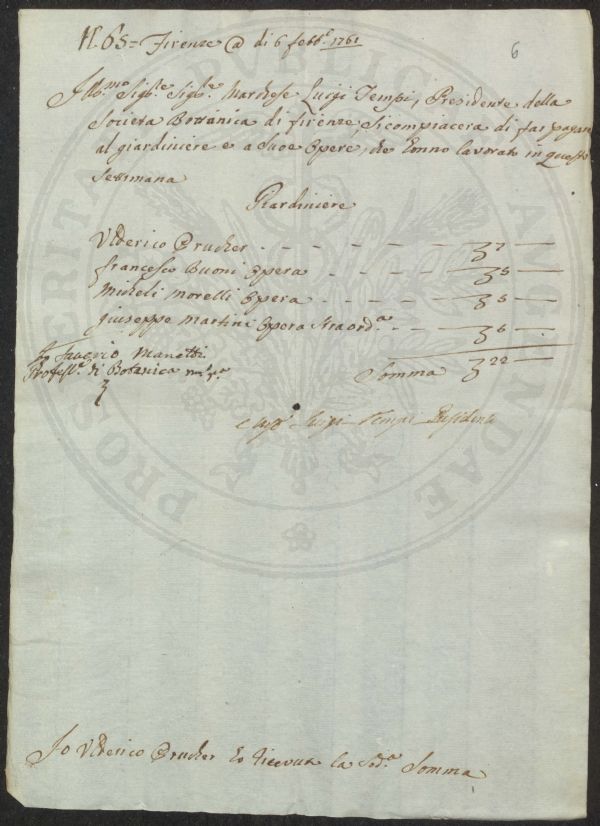 N. 65 = Firenze @ di 6 febb.e 1761
6
Ill.mo Sig.re Sig.re Marchese Luigi Tempi, Presidente della
Società Bottanica di firenze, Si compiacera di far pagare
al giardiniere e a Sue Opere, che Eonno lavorato in questa
Settimana
Giardiniere
Ulderico Prucher - - - - - - 7 —
francesco Buoni Opera - - - - 5 —
Micheli Morelli Opera - - - - 5 —
Giuseppe Martini Opera Straord.a - - 6 —
Io Saverio Manetti
Profess.e di Botanica m.o p.a
Somma 22 —
Luigi Tempi Presidente
Io Ulderico Prucher Eo ricevuta la Sod.a Somma
PROSPERITATI PUBLICAE AUGENDAE